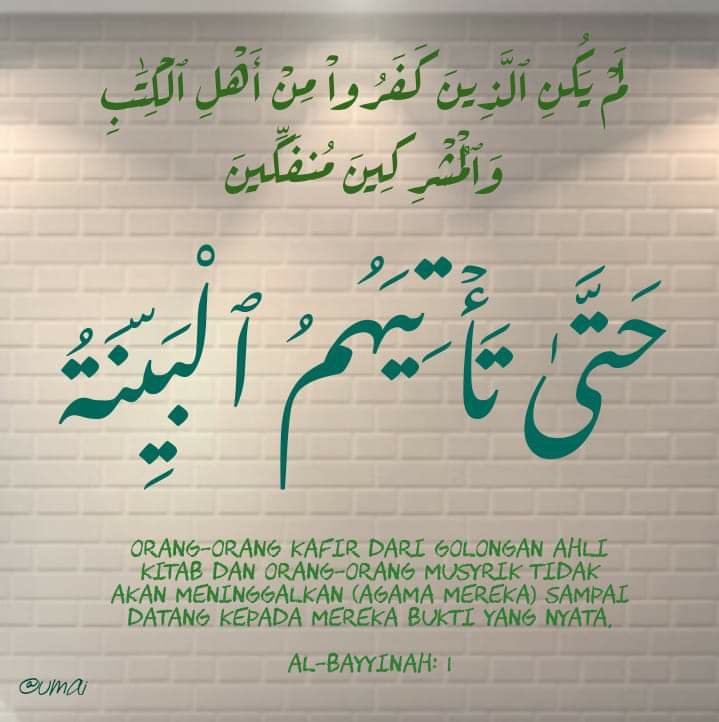 لَمْ يَكُنِ ٱلَّذِينَ كَفَرُوا۟ مِنْ أَهْلِ ٱلْكِتَٰبِ
وَٱلْمُشْرِكِينَ مُنفَكِّينَ
حَتَّىٰ تَأْتِيَهُمُ ٱلْبَيِّنَةُ
ORANG-ORANG KAFIR DARI GOLONGAN AHLI
KITAB DAN ORANG-ORANG MUSYRIK TIDAK
AKAN MENINGGALKAN (AGAMA MEREKA) SAMPAI
DATANG KEPADA MEREKA BUKTI YANG NYATA.
AL-BAYYINAH: 1
@umai